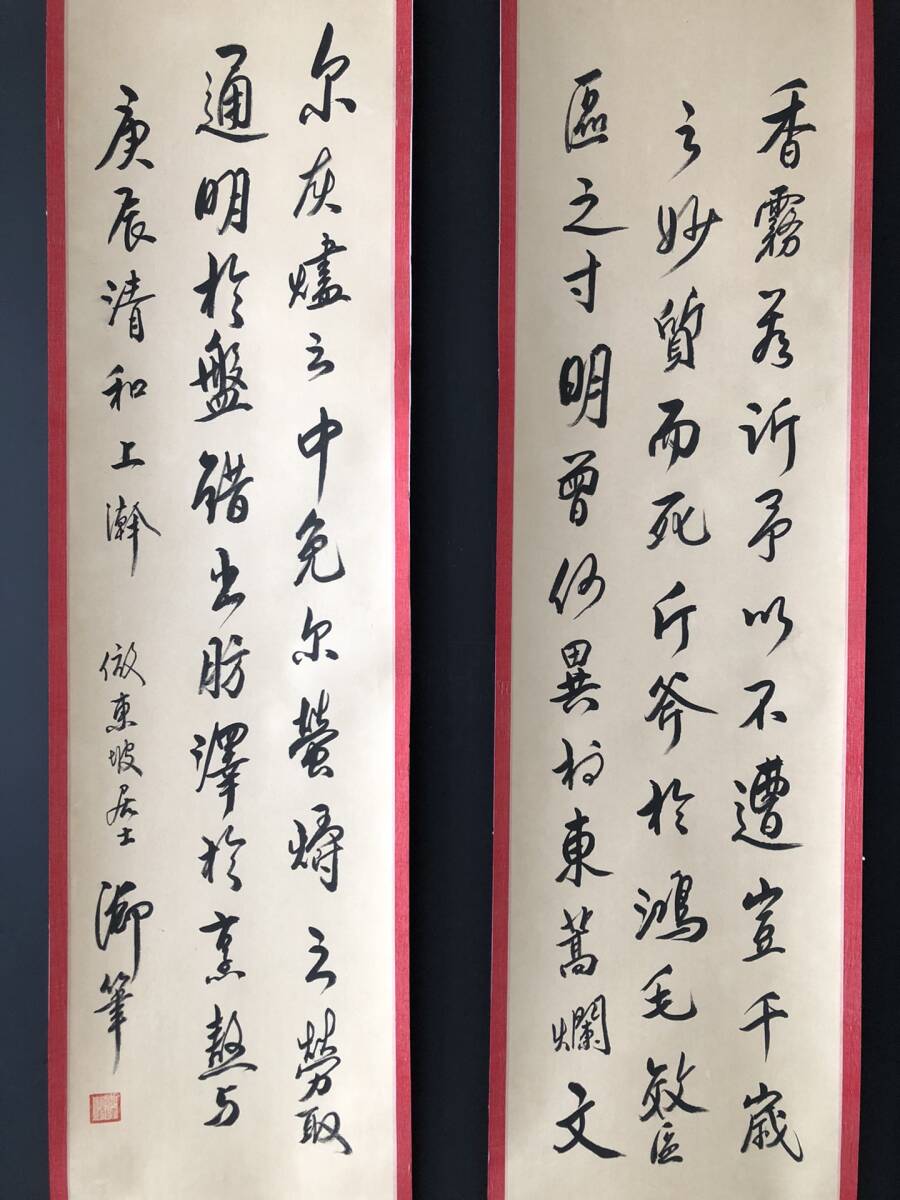 香霧若訴予以不遭豈千歲
之妙質而死斤斧於鴻毛效區
區之寸明曾何異於東蒿爛文
尔灰燼之中免尔螢爝之勞取
通明於盤錯出肪澤於烹熬与
庚辰清和上澣 倣東坡居士 御筆